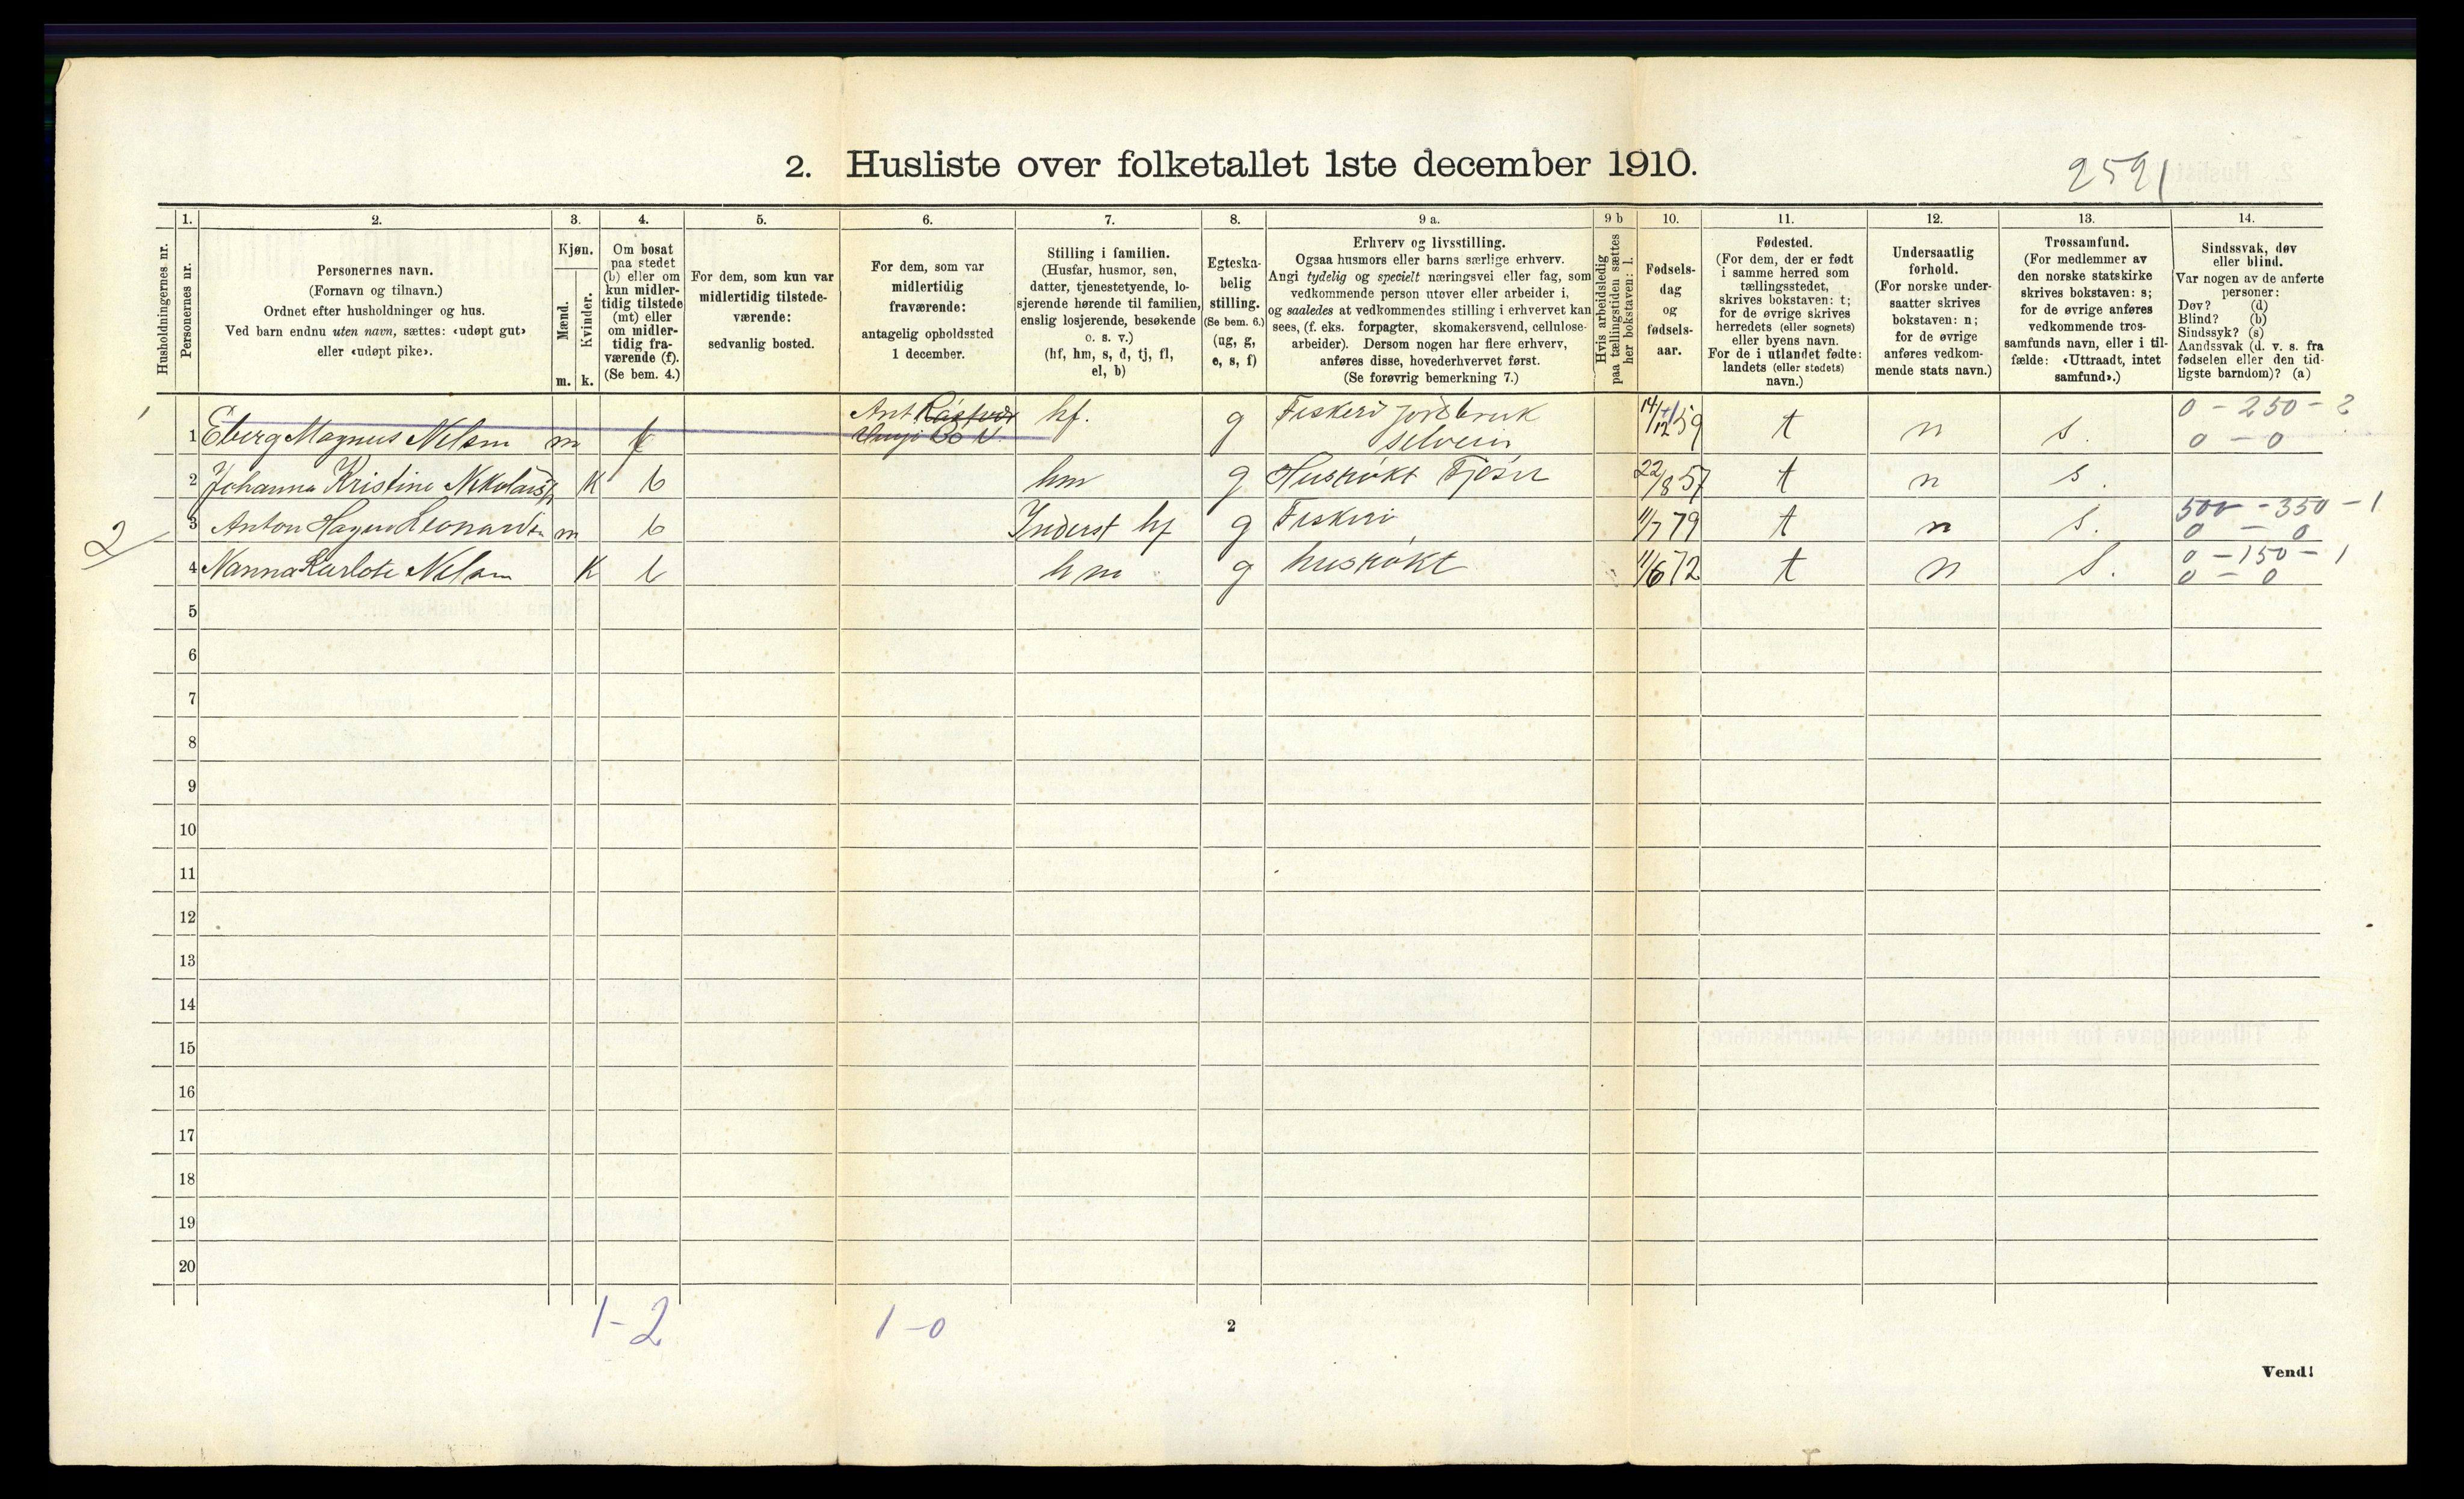 2. Husliste over folketallet 1ste december 1910.
2591
1. 2. 3. 4. 5. 6. 7. 8. 9 a. 9 b 10. 11. 12. 13. 14.
Husholdningernes nr.
Personernes nr.
Personernes navn.
(Fornavn og tilnavn.)
Ordnet efter husholdninger og hus.
Ved barn endnu uten navn, sættes: «udøpt gut»
eller «udøpt pike».
Kjøn.
Mænd.
Kvinder.
m. k.
Om bosat
paa stedet
(b) eller om
kun midler-
tidig tilstede
(mt) eller
om midler-
tidig fra-
værende (f).
(Se bem. 4.)
For dem, som kun var
midlertidig tilstede-
værende:
sedvanlig bosted.
For dem, som var
midlertidig
fraværende:
antagelig opholdssted
1 december.
Stilling i familien.
(Husfar, husmor, søn,
datter, tjenestetyende, lo-
sjerende hørende til familien,
enslig losjerende, besøkende
o. s. v.)
(hf, hm, s, d, tj, fl,
el, b)
Egteska-
belig
stilling.
(Se bem. 6.)
(ug, g,
e, s, f)
Erhverv og livsstilling.
Ogsaa husmors eller barns særlige erhverv.
Angi tydelig og specielt næringsvei eller fag, som
vedkommende person utøver eller arbeider i,
og saaledes at vedkommendes stilling i erhvervet kan
sees, (f. eks. forpagter, skomakersvend, cellulose-
arbeider). Dersom nogen har flere erhverv,
anføres disse, hovederhvervet først.
(Se forøvrig bemerkning 7.)
Hvis arbeidsledig
paa tællingstiden sættes
her bokstaven: l.
Fødsels-
dag
og
fødsels-
aar.
Fødested.
(For dem, der er født
i samme herred som
tællingsstedet,
skrives bokstaven: t;
for de øvrige skrives
herredets (eller sognets)
eller byens navn.
For de i utlandet fødte:
landets (eller stedets)
navn.)
Undersaatlig
forhold.
(For norske under-
saatter skrives
bokstaven: n;
for de øvrige
anføres vedkom-
mende stats navn.)
Trossamfund.
(For medlemmer av
den norske statskirke
skrives bokstaven: s;
for de øvrige anføres
vedkommende tros-
samfunds navn, eller i til-
fælde: «Uttraadt, intet
samfund».)
Sindssvak, døv
eller blind.
Var nogen av de anførte
personer:
Døv? (d)
Blind? (b)
Sindssyk? (s)
Aandssvak (d. v. s. fra
fødselen eller den tid-
ligste barndom)? (a)
Ant hf. Fiskeri jordbruk 14/12 59 0 - 250 - 2
1 Eberg Magnus Nelsen m f g selveier t n s. 0 - 0
2 Johanna Kristine k b hm g Husrøkt Fjøsst 22/8 57 t n s.
2 3 Anton Hagen Leonardsen m b Inderst hf g Fiskeri 11/7 79 t n s. 500 - 350 - 1
0 - 0
4 Nanna Karlote Nelsen K b hm g husrøkt 11/6 72 t n s. 0 - 150 - 1
0 - 0
5
6
7
8
9
10
11
12
13
14
15
16
17
18
19
20
1-2 1-0
2
Vend!